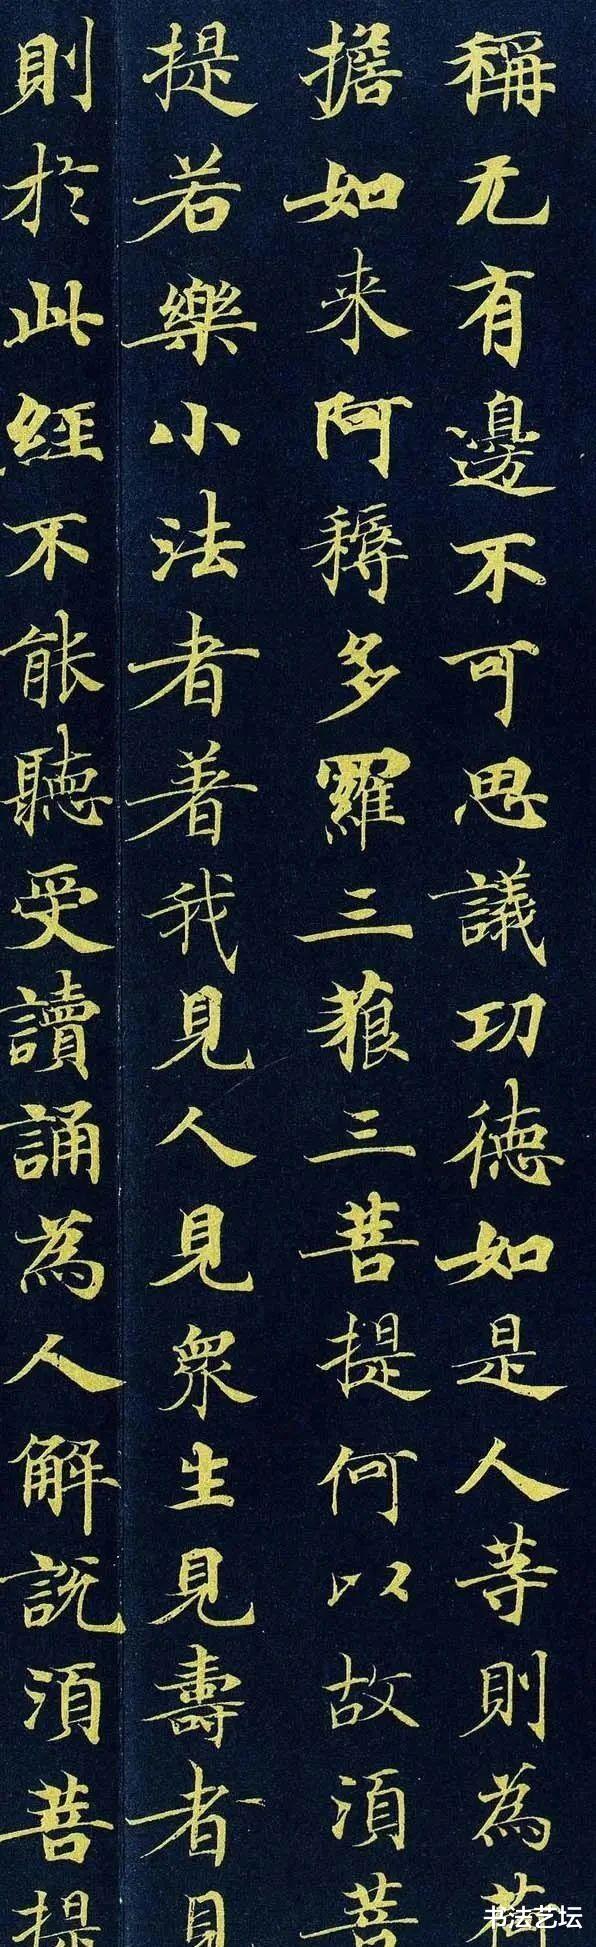 稱无有邊不可思議功德如是人等則為荷
擔如來阿耨多羅三藐三菩提何以故須菩
提若樂小法者著我見人見衆生見壽者見
則於此經不能聽受讀誦為人解説須菩提
书法艺坛